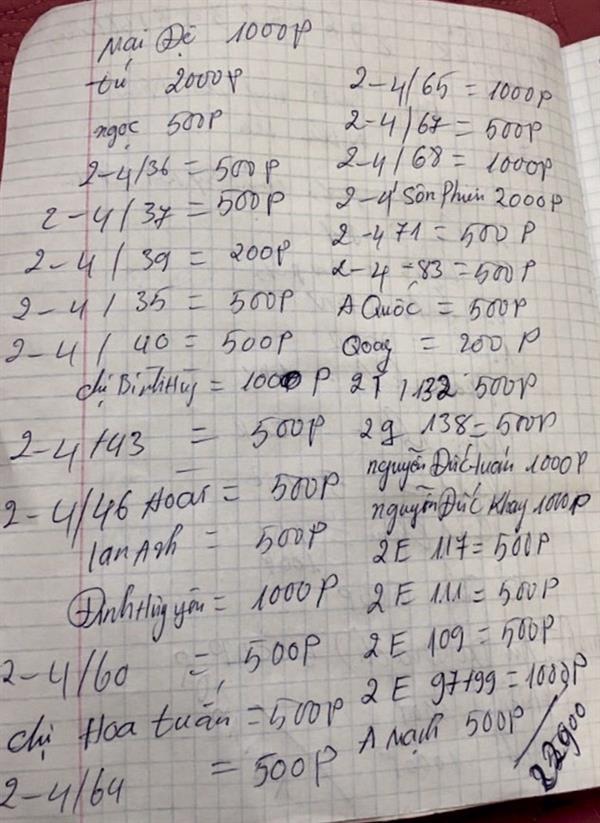 Mại Đệ 1000P
tú 2000P
ngọc 500P
2-4/36 = 500P
2-4/37 = 500P
2-4/39 = 200P
2-4/35 = 500P
2-4/40 = 500P
chị Bình Hùg = 1000P
2-4/43 = 500P
2-4/46 Hoat = 500P
lan Anh = 500P
Đinh Hùg yên = 1000P
2-4/60 = 500P
chị Hoa tuấn = 500P
2-4/64 = 500P
2-4/65 = 1000P
2-4/67 = 500P
2-4/68 = 1000P
2-4 Sôn Phiên 2000P
2-4 71 = 500P
2-4-83 = 500P
A Quốc = 500P
Qoag = 200P
2T / 132 500P
2g 138 = 500P
nguyễn Đức tuấn 1000P
nguyễn Đức Khay 1000P
2E 117 = 500P
2E 111 = 500P
2E 109 = 500P
2E 97+99 = 1000P
A Mạnh 500P
22900